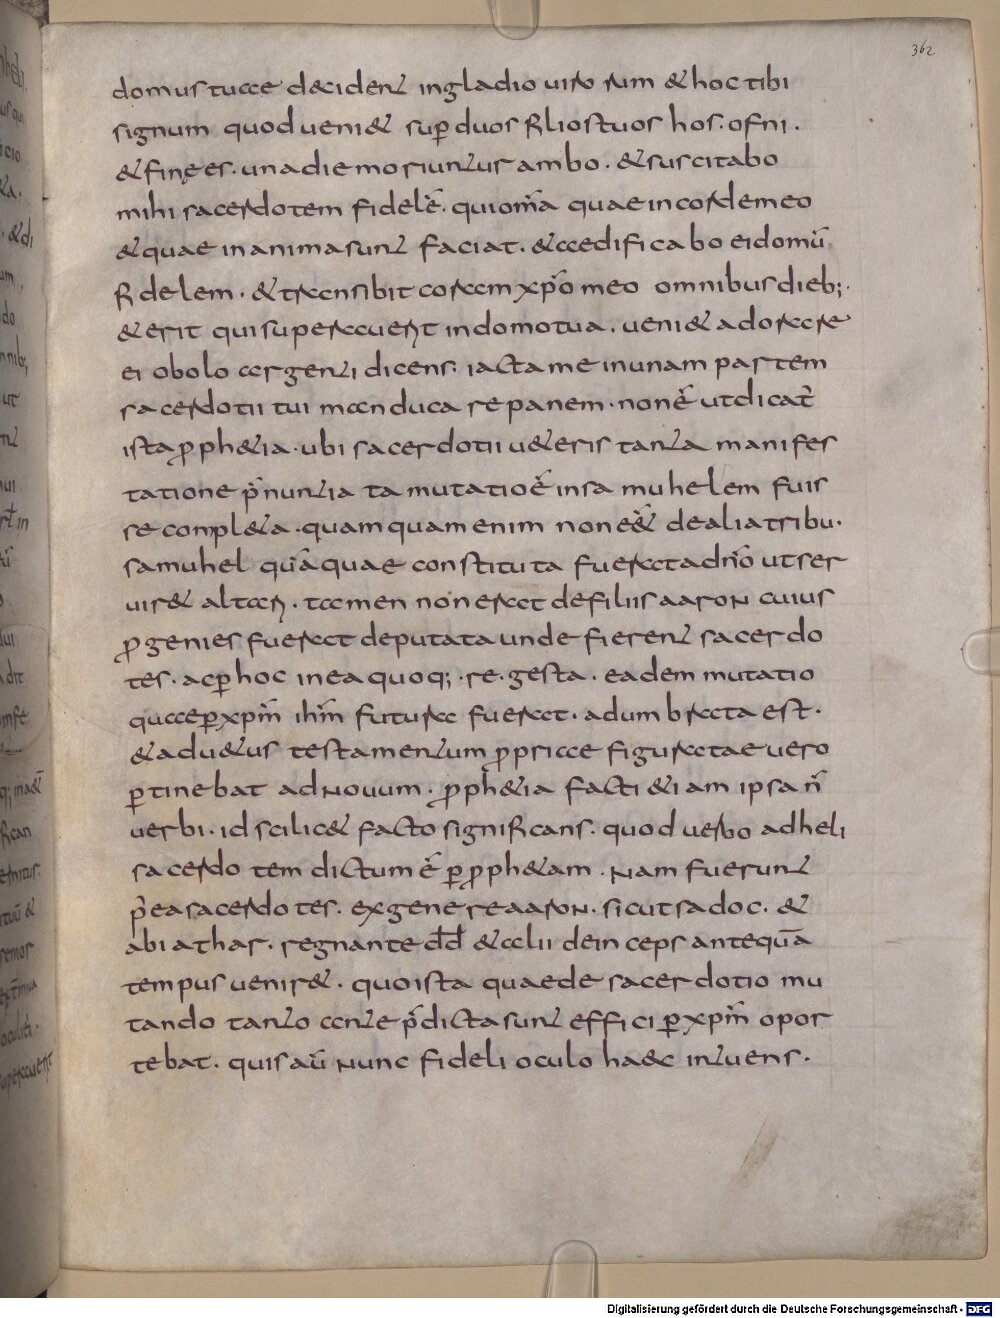 362
domus tuae decident in gladio uirorum & hoc tibi
signum quod ueni& sup̄ duos filios tuos hos. ofni.
& finees. una die moriuntur ambo. & suscitabo
mihi sacerdotem fidelē. qui om̄a quae in corde meo
& quae in anima sunt faciat. & aedificabo ei domū
fidelem. & transibit coram xp̄o meo omnibus dieb;.
& erit qui superauerit in domo tua. ueni& adorare
ei obolo argenti dicens. iacta me in unam partem
sacerdotii tui manducare panem. non ē ut dicat̄
ista proph&ia. ubi sacerdotii u&eris tanta manifes
tatione p̄nuntiata mutatio ē in samuhelem fuis
se compl&a. quamquam enim non eēt de alia tribu.
samuhel quā quae constituta fuerat a dn̄o ut ser
uir& altari. tamen non erat de filiis aaron cuius
progenies fuerat deputata unde fierent sacerdo
tes. ac p̄ hoc in ea quoq;. re. gesta. eadem mutatio
quae per xp̄m ih̄m futura fuerat. adumbrata est.
& ad u&us testamentum propriae figuratae uero
p̄tinebat ad nouum. proph&ia facti &iam ipsa n̄
uerbi. id scilic& facto significans. quod uerbo ad heli
sacerdotem dictum ē p̄ proph&am. nam fuerunt
p̄ea sacerdotes. ex genere aaron. sicut sadoc. &
abiathar. regnante dd̄ & alii deinceps antequā
tempus uenir&. quo ista quae de sacerdotio mu
tando tanto ante p̄dicta sunt effici per xp̄m opor
tebat. quis aū nunc fideli oculo haec intuens.
Digitalisierung gefördert durch die Deutsche Forschungsgemeinschaft - DFG